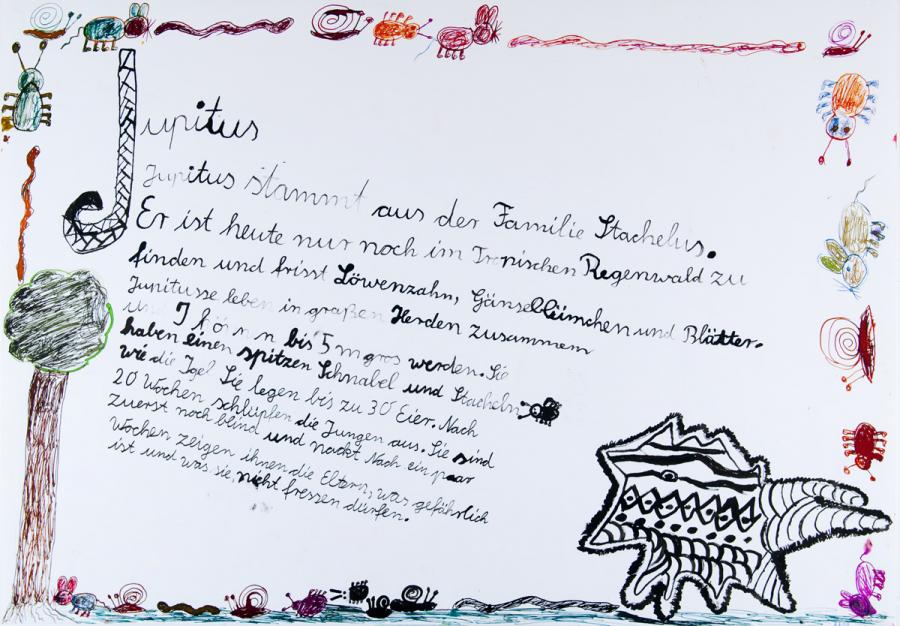 Jupitus
Jupitus stammt aus der Familie Stachelus.
Er ist heute nur noch im Tropischen Regenwald zu
finden und frisst Löwenzahn, Gänseblümchen und Blätter.
Junitusse leben in großen Herden zusammem
und bis 5 m gros werden. Sie
haben einen spitzen Schnabel und Stacheln
wie die Igel Sie legen bis zu 30 Eier. Nach
20 Wochen schlüpfen die Jungen aus. Sie sind
zuerst noch blind und nackt Nach ein paar
Wochen zeigen ihnen die Eltern, was gefährlich
ist und was sie nicht fressen dürfen.